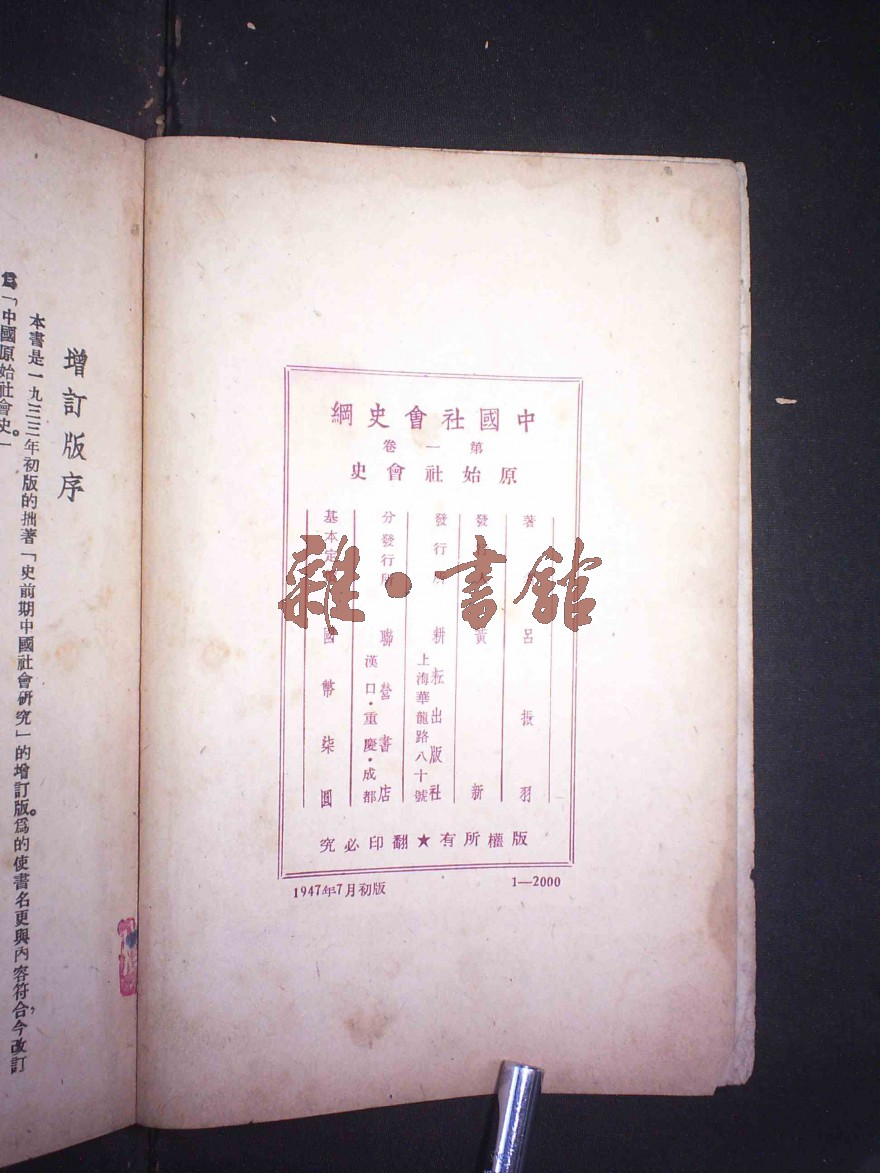 中國社會史綱
第一卷
原始社會史
著 呂振羽
發 人 黃新
發行所 耕耘出版社
上海華龍路八十號
分發行所 聯營書店
漢口·重慶·成都
基本定 國幣柒圓
版權所有★翻印必究
1947年7月初版
1—2000
雜·書館
增訂版序
本書是一九三三年初版的拙著「史前期中國社會研究」的增訂版。爲的使書名更與內容符合,今改訂
爲「中國原始社會史」。